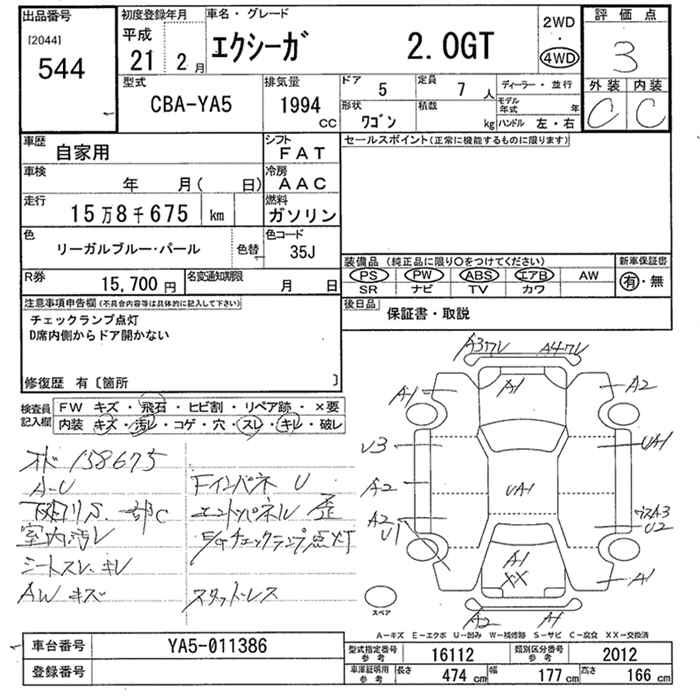 出品番号 初度登録年月 車名・グレード 2WD 評価点
[2044] 平成 エクシーガ 2.0GT ・ 3
544 21 2月 4WD
型式 排気量 ドア 定員 ディーラー・並行 外装 内装
CBA-YA5 1994 CC 5 7人 モデル年式 年 C C
形状 積載
ワゴン kg ハンドル 左・右
車歴 自家用 シフト FAT セールスポイント(正常に機能するものに限ります)
車検 年 月( 日) 冷房 AAC
走行 15万8千675 km 燃料 ガソリン
色 リーガルブルー・パール 色替 色コード 35J
装備品 (純正品に限り○をつけてください) 新車保証書
R券 15,700円 名変通知期限 月 日 PS PW ABS エアB AW 有・無
SR ナビ TV カワ
注意事項申告欄 (不具合内容等は具体的に記入して下さい) 後日品 保証書・取説
チェックランプ点灯
D席内側からドア開かない
修復歴 有〔箇所 〕
検査員記入欄 FW キズ・飛石・ヒビ割・リペア跡・×要
内装 キズ・汚レ・コゲ・穴・スレ・キレ・破レ
158675
A-U Fインパネ U
エンドパネル 歪
室内汚レ E/Gチェックランプ点灯
シートスレ、キレ
AWキズ スタットレス
A1 A1 A2
U3 UA1
A2 UA1
A2 U1 A3 U2
A1 XX A1
A2 A1
スペア
A-キズ E-エクボ U-凹み W-補修跡 S-サビ C-腐食 XX-交換済
車台番号 YA5-011386 型式指定番号参考 16112 類別区分番号参考 2012
登録番号 車庫証明用参考 長さ 474 cm 幅 177 cm 高さ 166 cm